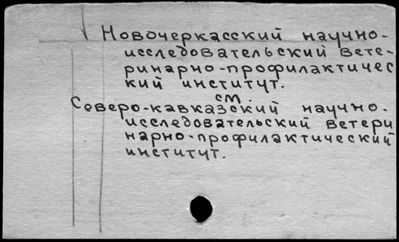 Новочеркасский научно-
исследовательский вете-
ринарно-профилактичес
кий институт.
см.
Северо-кавказский научно-
исследовательский ветери
нарно-профилактический
институт.